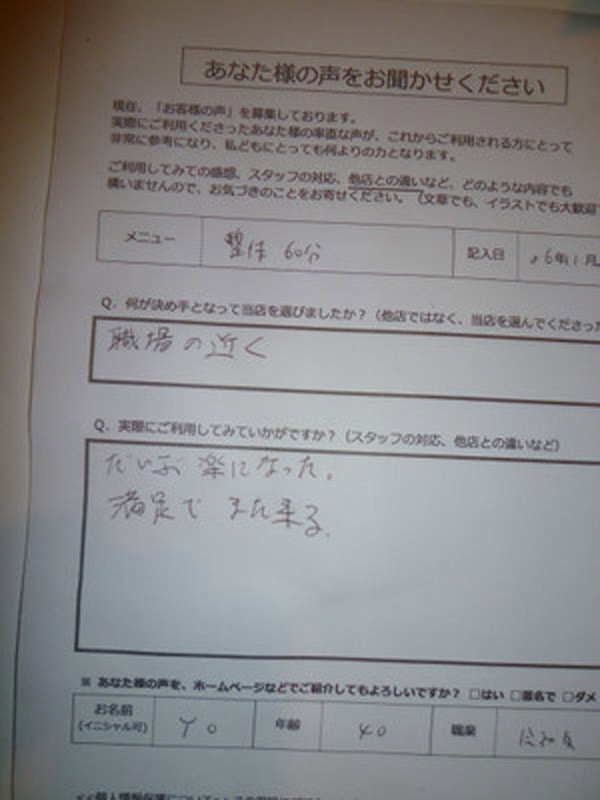 あなた様の声をお聞かせください
現在、「お客様の声」を募集しております。
実際にご利用くださったあなた様の率直な声が、これからご利用される方にとって
非常に参考になり、私どもにとっても何よりの力となります。
ご利用してみての感想、スタッフの対応、他店との違いなど、どのような内容でも
構いませんので、お気づきのことをお寄せください。（文章でも、イラストでも大歓迎
メニュー 整体 60分 記入日 26年1月
Q. 何が決め手となって当店を選びましたか？（他店ではなく、当店を選んでくださった
職場の近く
Q. 実際にご利用してみていかがですか？（スタッフの対応、他店との違いなど）
だいぶ楽になった。
満足でまた来る。
※ あなた様の声を、ホームページなどでご紹介してもよろしいですか？ □はい □匿名で □ダメ
お名前 Y O 年齢 40 職業
(イニシャル可)